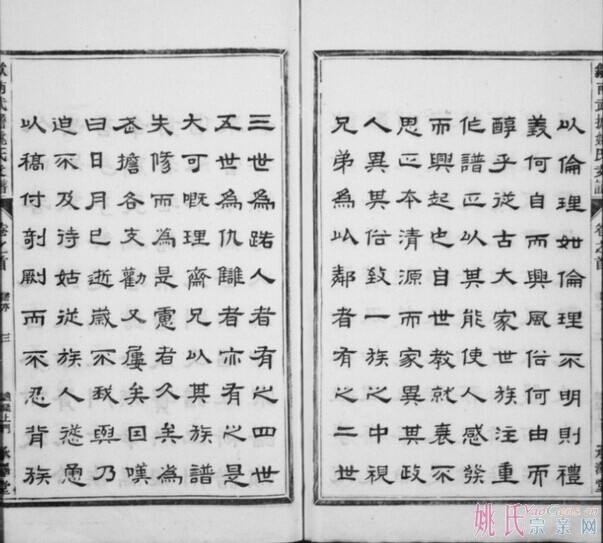 歙南武擔姚氏支譜 卷之首
以倫理如倫理不明則禮
義何自而興風俗何由而
醇乎從古大家世族注重
他譜正以其能使人感發
而興起也自世教就衰不
思正本清源而家異其政
人異其俗致一族之中視
兄弟為鄰者有之二世
三世為路人者有之四世
五世為仇讎者亦有之是
大可嘅理齋兄以其族譜
失修而為是慮者久矣為
武擔各支勸又屢矣因嘆
曰日月已逝歲不我與乃
迫不及待姑從族人慫恿
以稿付剞劂而不忍背族
歙南武擔姚氏支譜 卷之首 三 堂
姚氏宗亲网